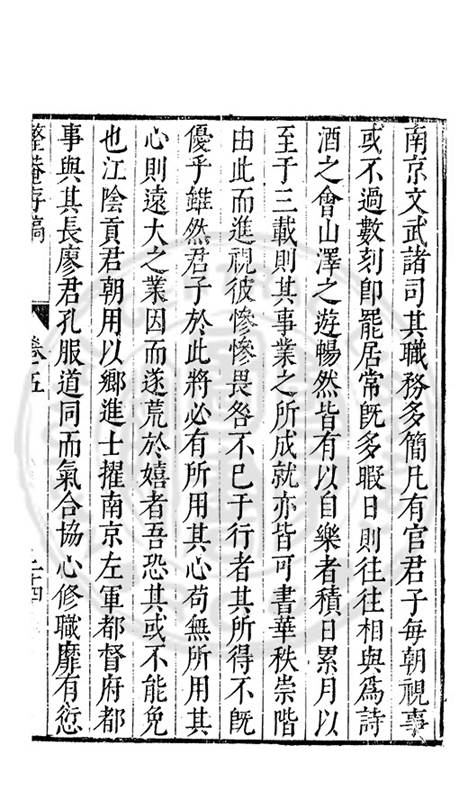 南京文武諸司其職務多簡凡有官君子毎朝視事
或不過數刻卽罷居常旣多暇日則往往相與爲詩
酒之會山澤之遊暢然皆有以自樂者積日累月以
至于三載則其事業之所成就亦皆可書華秩崇階
由此而進視彼慘慘畏咎不已于行者其所得不旣
優乎雖然君子於此將必有所用其心苟無所用其
心則遠大之業因而遂荒於嬉者吾恐其或不能免
也江陰貢君朝用以鄉進士擢南京左軍都督府都
事與其長廖君孔服道同而氣合協心修職靡有愆
整菴存稿
卷五
二十四